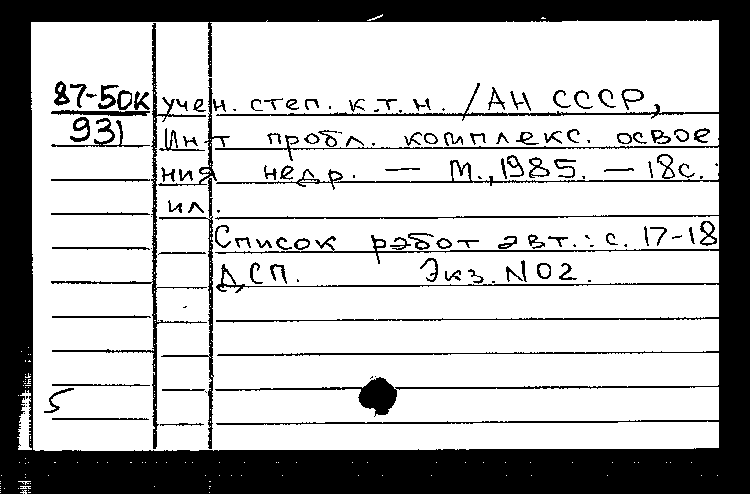 87-50к
931
учен. степ. к.т.н. / АН СССР,
Ин-т пробл. комплекс. освое
ния недр. — М., 1985. — 18с.:
ил.
Список работ авт.: с. 17-18
ДСП. Экз. N02.
5